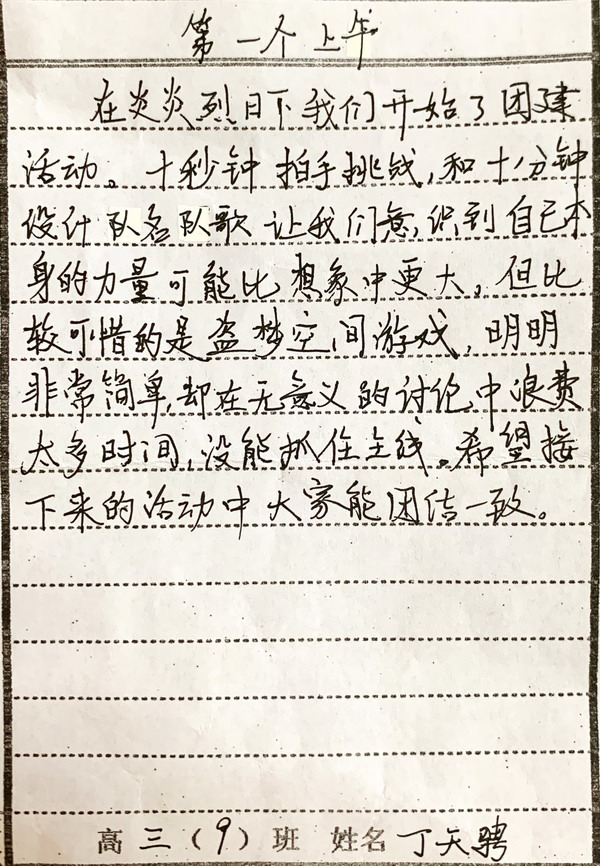 第一个上午
在炎炎烈日下我们开始了团建
活动。十秒钟拍手挑战,和十分钟
设计队名队歌让我们意识到自己本
身的力量可能比想象中更大。但比
较可惜的是盗梦空间游戏,明明
非常简单,却在无意义的讨论中浪费
太多时间,没能抓住主线。希望接
下来的活动中大家能团结一致。
高三(9)班 姓名 丁天骋